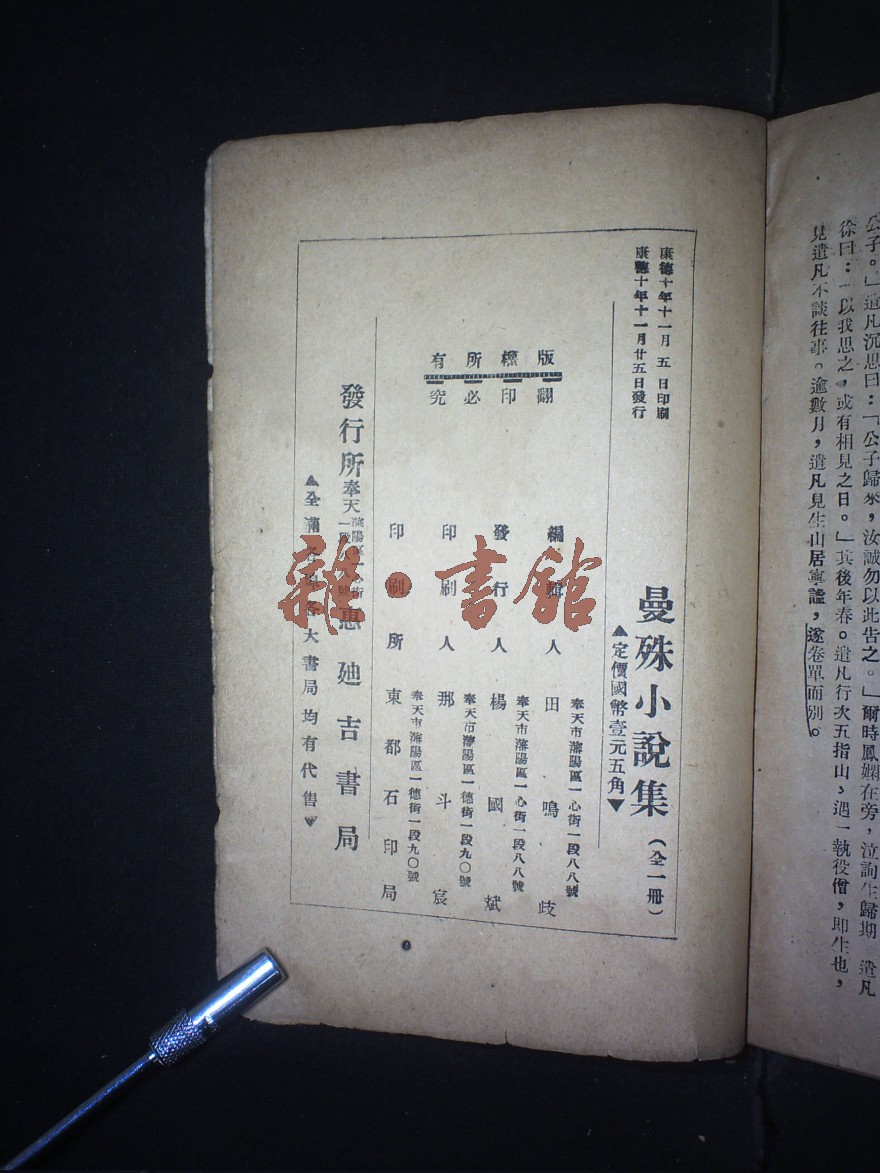 公子。」遺凡沉思曰：「公子歸來，汝誠勿以此告之。」爾時鳳嫻在旁，泣詢生歸期　遺凡
徐曰：「以我思之，或有相見之日。」其後年春。遺凡行次五指山，遇一執役僧，即生也，
見遺凡不談往事。逾數月，遺凡見生山居寧謐，遂卷單而別。
康德十年十一月　五　日印刷
康德十年十一月廿五日發行
曼殊小說集（全一冊）
▲定價國幣壹元五角▼
版權所有
翻印必究
奉天市瀋陽區一心街一段八八號
編輯人　田鳴歧
奉天市瀋陽區一心街一段八八號
發行人　楊國斌
奉天市瀋陽區一德街一段九〇號
印刷人　那斗宸
奉天市瀋陽區一德街一段九〇號
印刷所　東都石印局
發行所　奉天瀋陽區一心街　惠廸吉書局
▲全滿各　大書局均有代售▼
雜·書館